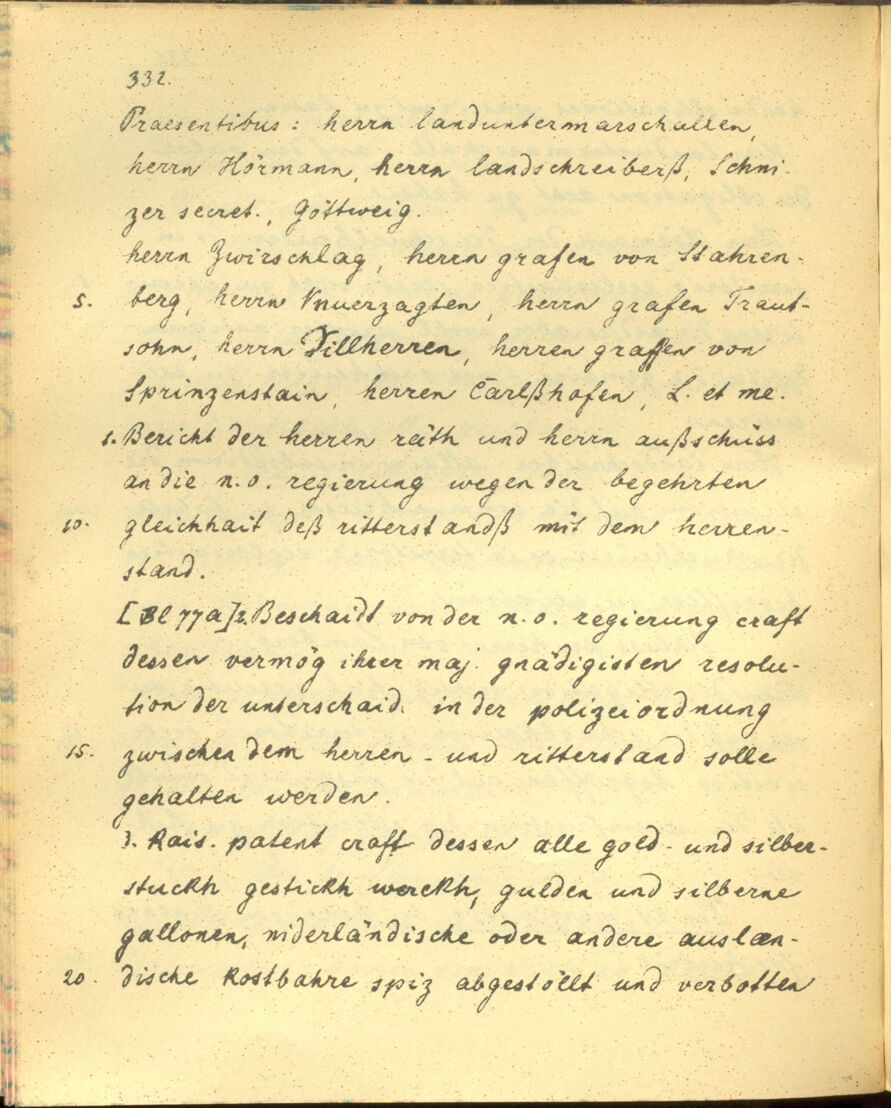 332.
Praesentibus: herrn landuntermarschallen,
herrn Hörmann, herrn landschreiberß, Schni-
zer secret., Göttweig.
herrn Zwirschlag, herrn grafen von Stahren-
5. berg, herrn Vnuerzagten, herrn grafen Traut-
sohn, herrn Dillherren, herren graffen von
Sprinzenstain, herren Carlßhofen, L. et me.
1. Bericht der herren räth und herrn außschüss
an die n.o. regierung wegen der begehrten
10. gleichhait deß ritterstandß mit dem herren-
stand.
[Bl 77a] 2. Beschaidt von der n.o. regierung craft
dessen vermög ihrer maj. gnädigisten resolu-
tion der unterschaid. in der polizeiordnung
15. zwischen dem herren- und ritterstand solle
gehalten werden.
3. Kais. patent craft dessen alle gold- und silber-
stuckh gestickh werckh, gulden und silberne
gallonen, niderländische oder andere auslæn-
20. dische kostbahre spiz abgestöllt und verbotten